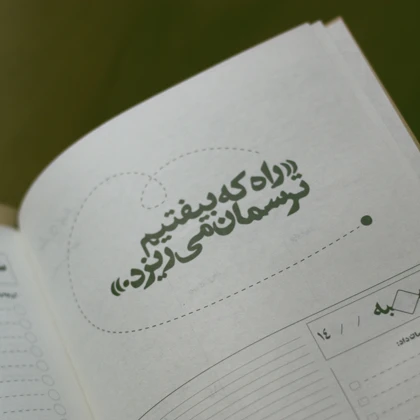 «راه که بیفتیم
ترسمان می‌ریزد.»
به
۱۴ / /